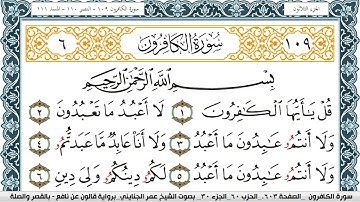 الجزء الثلاثون
سورة الكافرون ١٠٩ - النصر ١١٠ - المسد ١١١
١٠٩ سُورَةُ الكَافِرُونَ ٦
بِسْمِ اللَّهِ الرَّحْمَٰنِ الرَّحِيمِ
قُلْ يَٰأَيُّهَا اَلْكَٰفِرُونَ ١ لَا أَعْبُدُ مَا تَعْبُدُونَ ٢
وَلَا أَنتُمُۥ عَٰبِدُونَ مَا أَعْبُدُ ٣ وَلَا أَنَا عَابِدٌ مَّا عَبَدتُّمُۥ ٤
وَلَا أَنتُمُۥ عَٰبِدُونَ مَا أَعْبُدُ ٥ لَكُمُۥ دِينُكُمُۥ وَلِيَ دِينِ ٦
سورة الكافرون .. الصفحة ٦٠٣ - الحزب ٦٠ - الجزء ٣٠ . بصوت الشيخ عمر الجنايني برواية قالون عن نافع - بالقصر والصلة